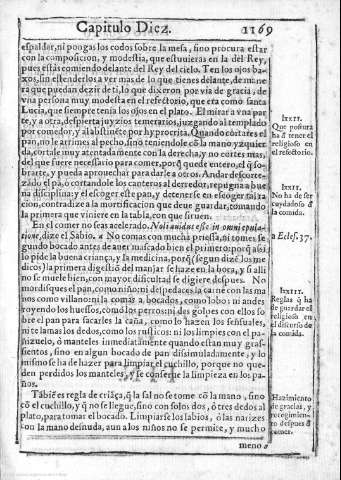 Capitulo Diez. 1169
espaldar, ni pongas los codos sobre la mesa, sino procura estar
con la composicion, y modestia, que estuuieras en la del Rey,
pues estàs comiendo delante del Rey del cielo. Ten los ojos ba-
xos, sin estenderlos a ver mas de lo que tienes delante, de mane
ra que puedan dezir de ti, lo que dixeron por via de gracia, de
vna persona muy modesta en el refectorio, que era como santa
Lucia, que siempre tenia los ojos en el plato. El mirar a vna par
te, y a otra, despierta juyzios temerarios, juzgando al templado
por comedor, y al abstinẽte por hypocrita. Quando cortares el
pan, no le arrimes al pecho, sino teniendole cõ la mano yzquier
da, cortale muy atentamente con la derecha, y no cortes mas,
del que fuere necessario para comer, porq̃ quede entero, el q̃ so-
brarte, y pueda aprouechar para darle a otros. Andar descorte-
zado el pã, ò cortandole los canteros al derredor, repugna a bue
na disciplina: y el escoger este pan, y detenerse en escoger tal ra
cion, contradize a la mortificacion que deue guardar, tomando
la primera que viniere en la tabla, con que siruen.
En el comer no seas acelerado. Noli auidus esse in omni epula-
tione, dize el Sabio. a No comas con mucha priessa, ni tomes se
gundo bocado antes de auer maxcado bien el primero: porq̃ assi
lo pide la buena criança, y la medicina, porq̃ (segun dizẽ los me
dicos) la primera digestiõ del manjar se haze en la boca, y si alli
no se muele bien, con mayor dificultad se digiere despues. No
mordisques el pan, como niño: ni despedaces la carne con las ma
nos como villano: ni la comas a bocados, como lobo: ni andes
royendo los huessos, como los perros: ni des golpes con ellos so
bre el pan para sacarles la caña, como lo hazen los sensuales,
ni te lamas los dedos, como los rusticos: ni los limpies con el pa-
ñizuelo, ò manteles inmediatamente quando estan muy gras-
sientos, sino en algun bocado de pan dissimuladamente; y lo
mismo se ha de hazer para limpiar el cuchillo, porque no que-
den perdidos los manteles, y se conserue la limpieza en los pa-
ños.
Tãbiẽ es regla de criãça, q̃ la sal no se tome cõ la mano, sino
cõ el cuchillo, y q̃ no se llegue, sino con solos dos, ò tres dedos al
plato, para tomar el bocado. Limpiarse los labios, ò las narizes
con la mano desnuda, aun a los niños no se permite, y mucho
menos
Que postura
ha d̃ tener el
religioso en
el refectorio.
No ha de ser
cuydadoso d̃
la comida.
a Eccles. 37.
Reglas q̃ ha
de guardar el
religioso en
el discurso de
la comida.
Hazimiento
de gracias, y
recogimien-
to despues d̃
comer.